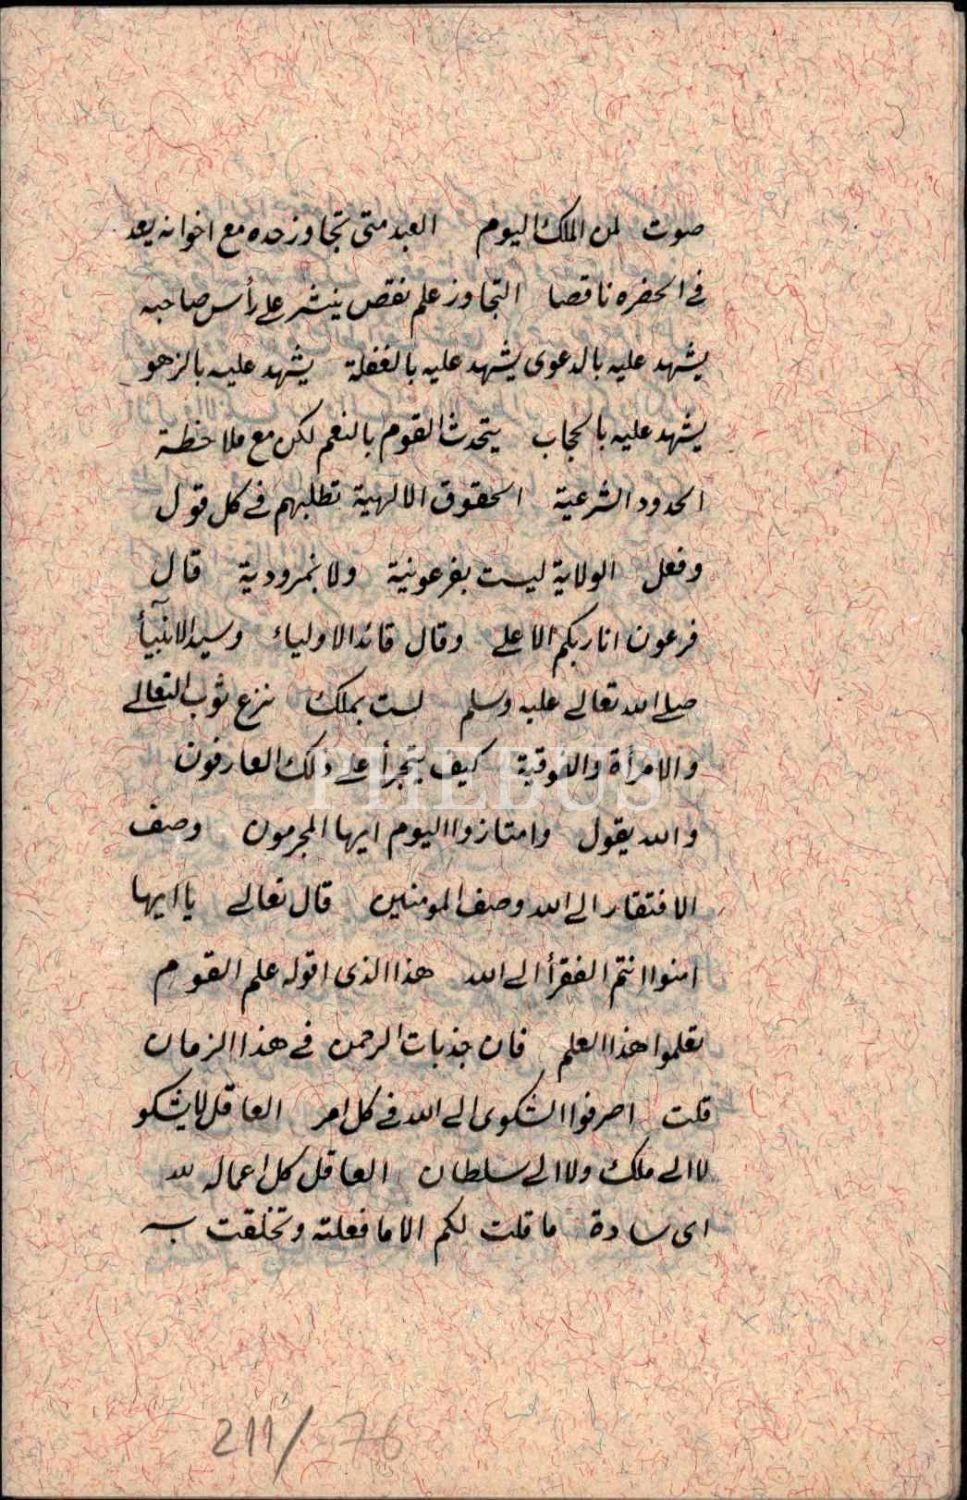 صوت لمن الملك اليوم العبد متى تجاوز حده مع اخوانه يعد
في الحضره ناقصا التجاوز علم نقص ينشر على رأس صاحبه
يشهد عليه بالدعوى يشهد عليه بالغفلة يشهد عليه بالزهو
يشهد عليه بالحجاب يتحدث القوم بالنعم لكن مع ملاحظة
الحدود الشرعية الحقوق الالهية تطلبهم في كل قول
وفعل الولاية ليست بفرعونية ولا بنمرودية قال
فرعون انا ربكم الاعلى وقال قائد الاولياء وسيد الانبيأ
صلى الله تعالى عليه وسلم لست بملك نزع ثوب التعالى
والامرأة والفوقية كيف يتجرأ على ذلك العارفون
PHEBUS
والله يقول وامتازوا اليوم ايها المجرمون وصف
الافتقار الى الله وصف المومنين قال تعالى يا ايها
امنوا انتم الفقرأ الى الله هذا الذى اقوله علم القوم
تعلموا هذا العلم فان جذبات الرحمن في هذا الزمان
قلت اصرفوا الشكوى الى الله في كل امر العاقل لا يشكو
لا الى ملك ولا الى سلطان العاقل كل اعماله لله
اى سادة ما قلت لكم الا ما فعلته وتخلقت به
211/ 76